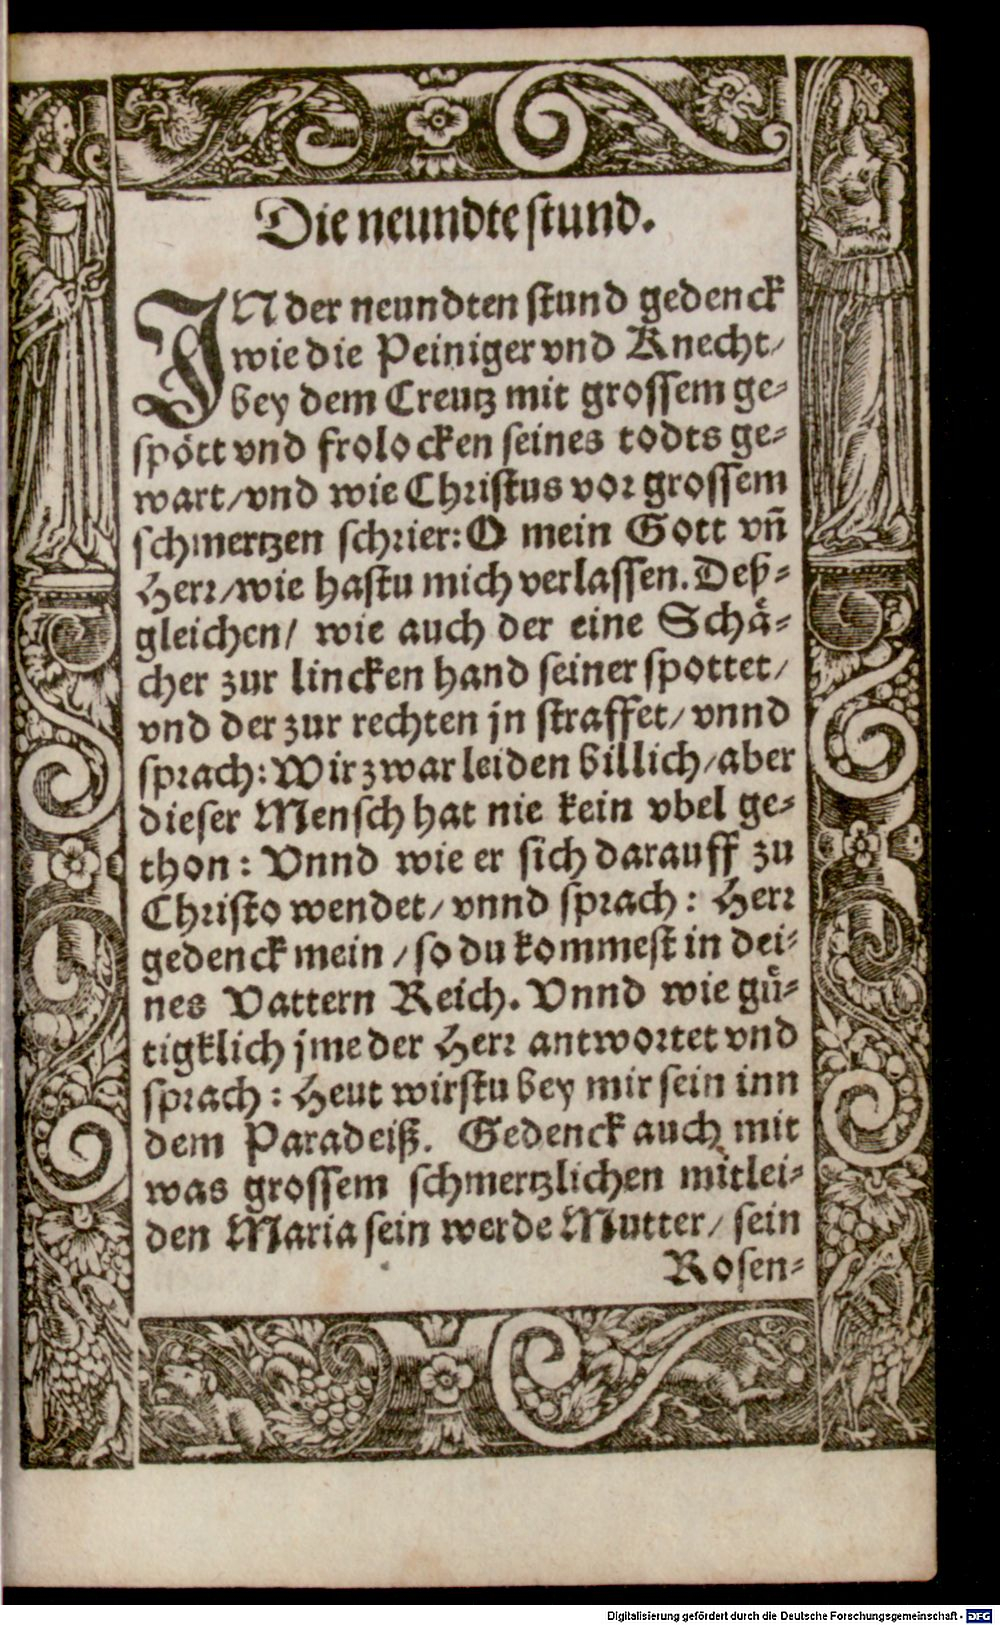 Die neundte stund.
IN der neundten stund gedenck
wie die Peiniger vnd Knecht/
bey dem Creutz mit grossem ge-
spött vnd frolocken seines todts ge-
wart/vnd wie Christus vor grossem
schmertzen schrier: O mein Gott vñ
Herr/wie hastu mich verlassen. Deß-
gleichen/ wie auch der eine Schä-
cher zur lincken hand seiner spottet/
vnd der zur rechten jn straffet/ vnnd
sprach: Wir zwar leiden billich/aber
dieser Mensch hat nie kein vbel ge-
thon: Vnnd wie er sich darauff zu
Christo wendet/ vnnd sprach: Herr
gedenck mein /so du kommest in dei-
nes Vattern Reich. Vnnd wie gü-
tigklich jme der Herr antwortet vnd
sprach: Heut wirstu bey mir sein inn
dem Paradeiß. Gedenck auch mit
was grossem schmertzlichen mitlei-
den Maria sein werde Mutter/ sein
Rosen-
Digitalisierung gefördert durch die Deutsche Forschungsgemeinschaft - DFG